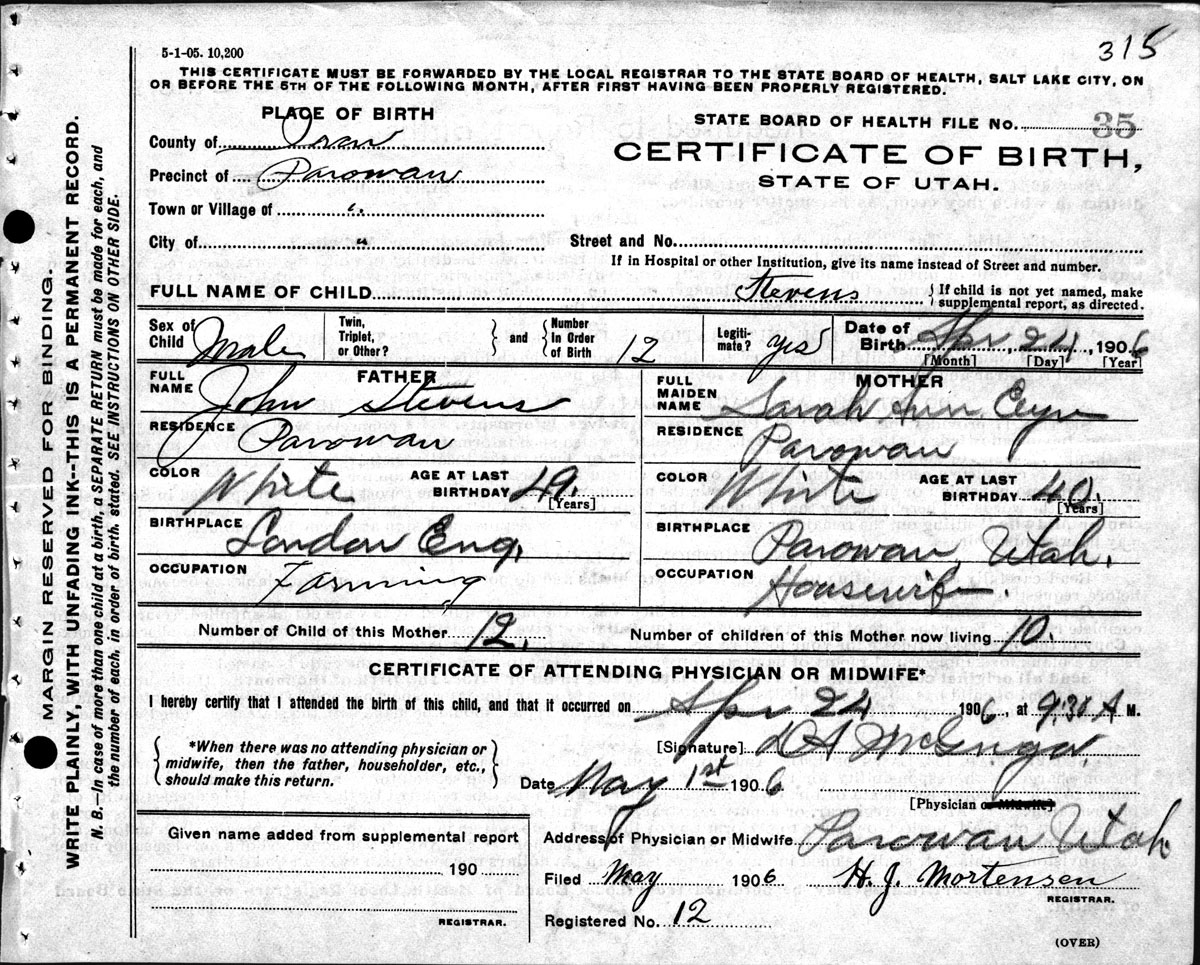 315
5-1-05. 10,200
THIS CERTIFICATE MUST BE FORWARDED BY THE LOCAL REGISTRAR TO THE STATE BOARD OF HEALTH, SALT LAKE CITY, ON
OR BEFORE THE 5TH OF THE FOLLOWING MONTH, AFTER FIRST HAVING BEEN PROPERLY REGISTERED.
PLACE OF BIRTH
County of Iron
Precinct of Parowan
Town or Village of "
City of "
STATE BOARD OF HEALTH FILE No. 35
CERTIFICATE OF BIRTH,
STATE OF UTAH.
Street and No.
If in Hospital or other Institution, give its name instead of Street and number.
FULL NAME OF CHILD Stevens { If child is not yet named, make
supplemental report, as directed.
Sex of Child Male Twin, Triplet, or Other? } and { Number In Order of Birth 12 Legiti- mate? yes Date of Birth Apr 24, 1906
[Month] [Day] [Year]
FATHER
FULL NAME John Stevens
RESIDENCE Parowan
COLOR White AGE AT LAST BIRTHDAY 49. [Years]
BIRTHPLACE London Eng.
OCCUPATION Farming
MOTHER
FULL MAIDEN NAME Sarah Ann
RESIDENCE Parowan
COLOR White AGE AT LAST BIRTHDAY 40. [Years]
BIRTHPLACE Parowan, Utah.
OCCUPATION Housewife.
Number of Child of this Mother 12. Number of children of this Mother now living 10.
CERTIFICATE OF ATTENDING PHYSICIAN OR MIDWIFE*
I hereby certify that I attended the birth of this child, and that it occurred on Apr 24 1906, at 9:30 A M.
{ *When there was no attending physician or
midwife, then the father, householder, etc.,
should make this return. }
[Signature]
Date May 1st 1906
[Physician or Midwife]
Given name added from supplemental report
190
REGISTRAR.
Address of Physician or Midwife Parowan Utah
Filed May 1906 H. J. Mortensen
REGISTRAR.
Registered No. 12
(OVER)
MARGIN RESERVED FOR BINDING.
WRITE PLAINLY, WITH UNFADING INK--THIS IS A PERMANENT RECORD.
N. B.—In case of more than one child at a birth, a SEPARATE RETURN must be made for each, and
the number of each, in order of birth, stated. SEE INSTRUCTIONS ON OTHER SIDE.